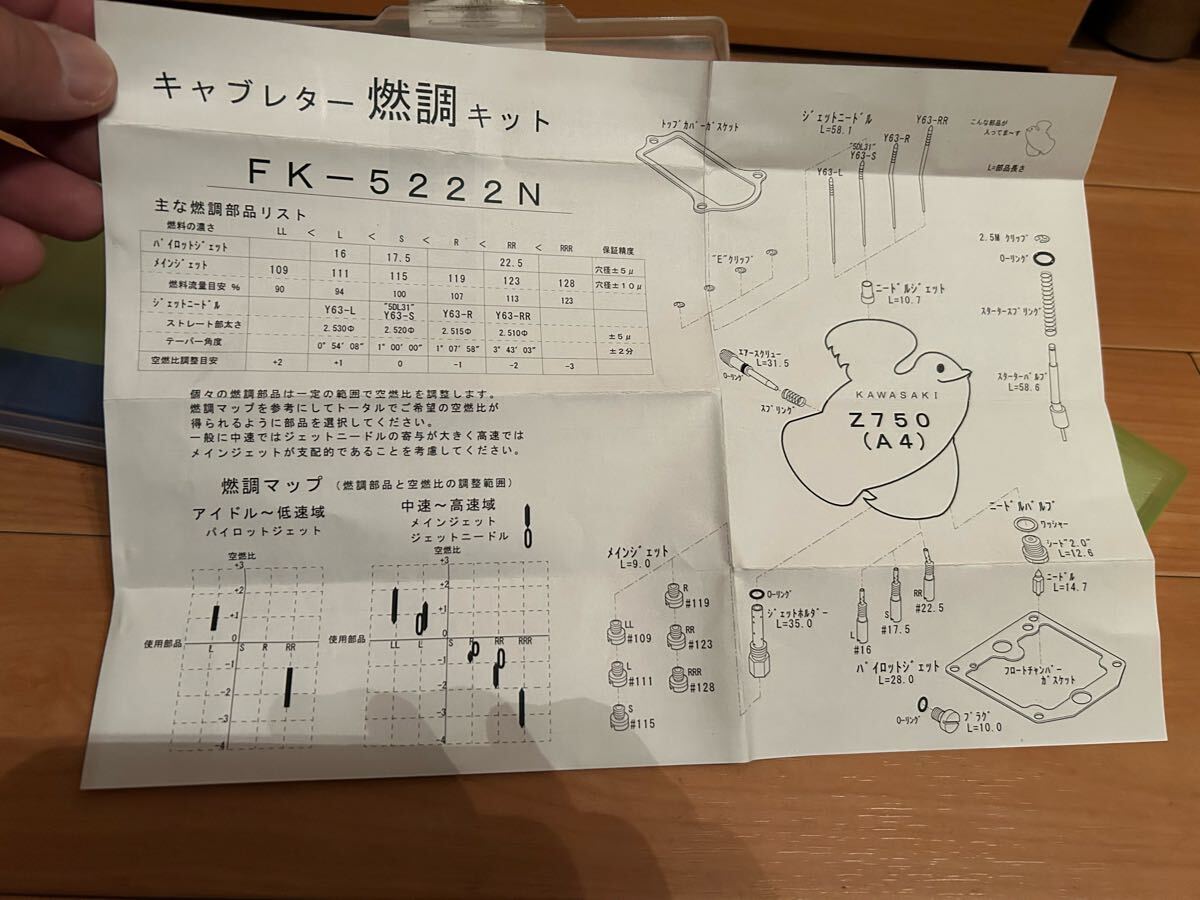 キャブレター燃調キット
FK-5222N
主な燃調部品リスト
燃料の濃さ LL < L < S < R < RR < RRR 保証精度
パイロットジェット 16 17.5 22.5 穴径±5μ
メインジェット 109 111 115 119 123 128 穴径±10μ
燃料流量目安 % 90 94 100 107 113 123
ジェットニードル Y63-L "5DL31" Y63-S Y63-R Y63-RR
ストレート部太さ 2.530Φ 2.520Φ 2.515Φ 2.510Φ ±5μ
テーパー角度 0° 54' 08" 1° 00' 00" 1° 07' 58" 3° 43' 03" ±2分
空燃比調整目安 +2 +1 0 -1 -2 -3
個々の燃調部品は一定の範囲で空燃比を調整します。
燃調マップを参考にしてトータルでご希望の空燃比が
得られるように部品を選択してください。
一般に中速ではジェットニードルの寄与が大きく高速では
メインジェットが支配的であることを考慮してください。
燃調マップ (燃調部品と空燃比の調整範囲)
アイドル~低速域
パイロットジェット
空燃比
+3
+2
+1
0
使用部品 L S R RR
-1
-2
-3
-4
中速~高速域
メインジェット
ジェットニードル
空燃比
+3
+2
+1
0
使用部品 LL L S R RR RRR
-1
-2
-3
-4
トップカバーガスケット
ジェットニードル
L=58.1
Y63-L
"5DL31"
Y63-S
Y63-R
Y63-RR
こんな部品が
入ってま~す
L=部品長さ
"E"クリップ
ニードルジェット
L=10.7
2.5M クリップ
Oーリング
スタータースプリング
スターターバルブ
L=58.6
エアースクリュー
L=31.5
Oーリング
スプリング
KAWASAKI
Z750
(A4)
ニードルバルブ
ワッシャー
シート"2.0"
L=12.6
ニードル
L=14.7
メインジェット
L=9.0
R
#119
LL
#109
RR
#123
L
#111
RRR
#128
S
#115
Oーリング
ジェットホルダー
L=35.0
L
#16
S
#17.5
RR
#22.5
パイロットジェット
L=28.0
フロートチャンバー
ガスケット
Oーリング
プラグ
L=10.0